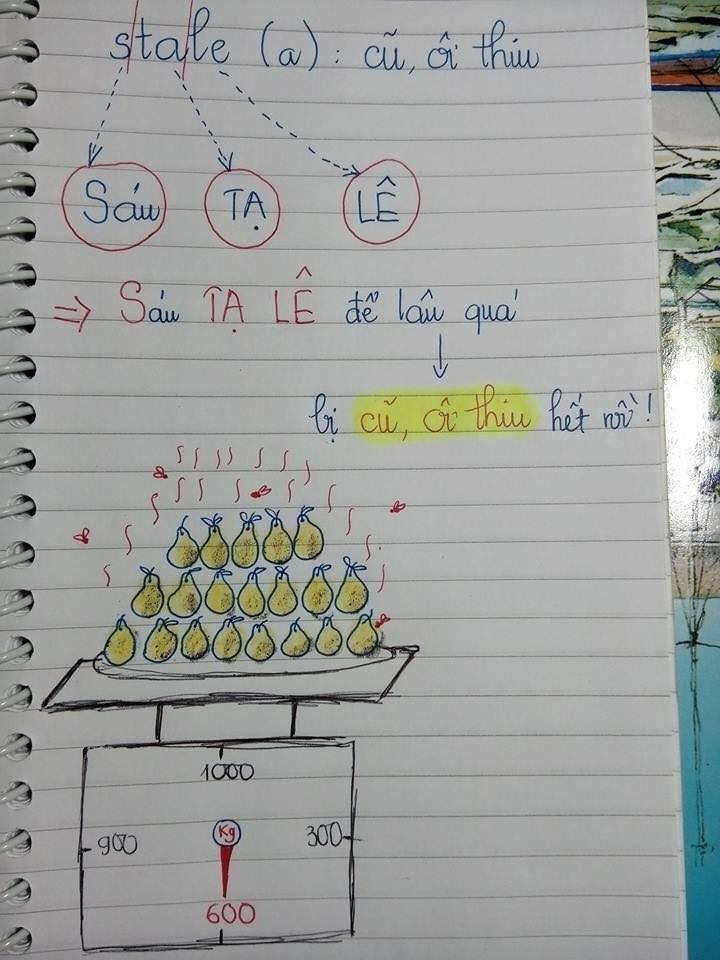 stale (a): cũ, ôi thiu
Sáu TẠ LÊ
=> Sáu TẠ LÊ để lâu quá
bị cũ, ôi thiu hết rồi!
1000
900 Kg 300
600